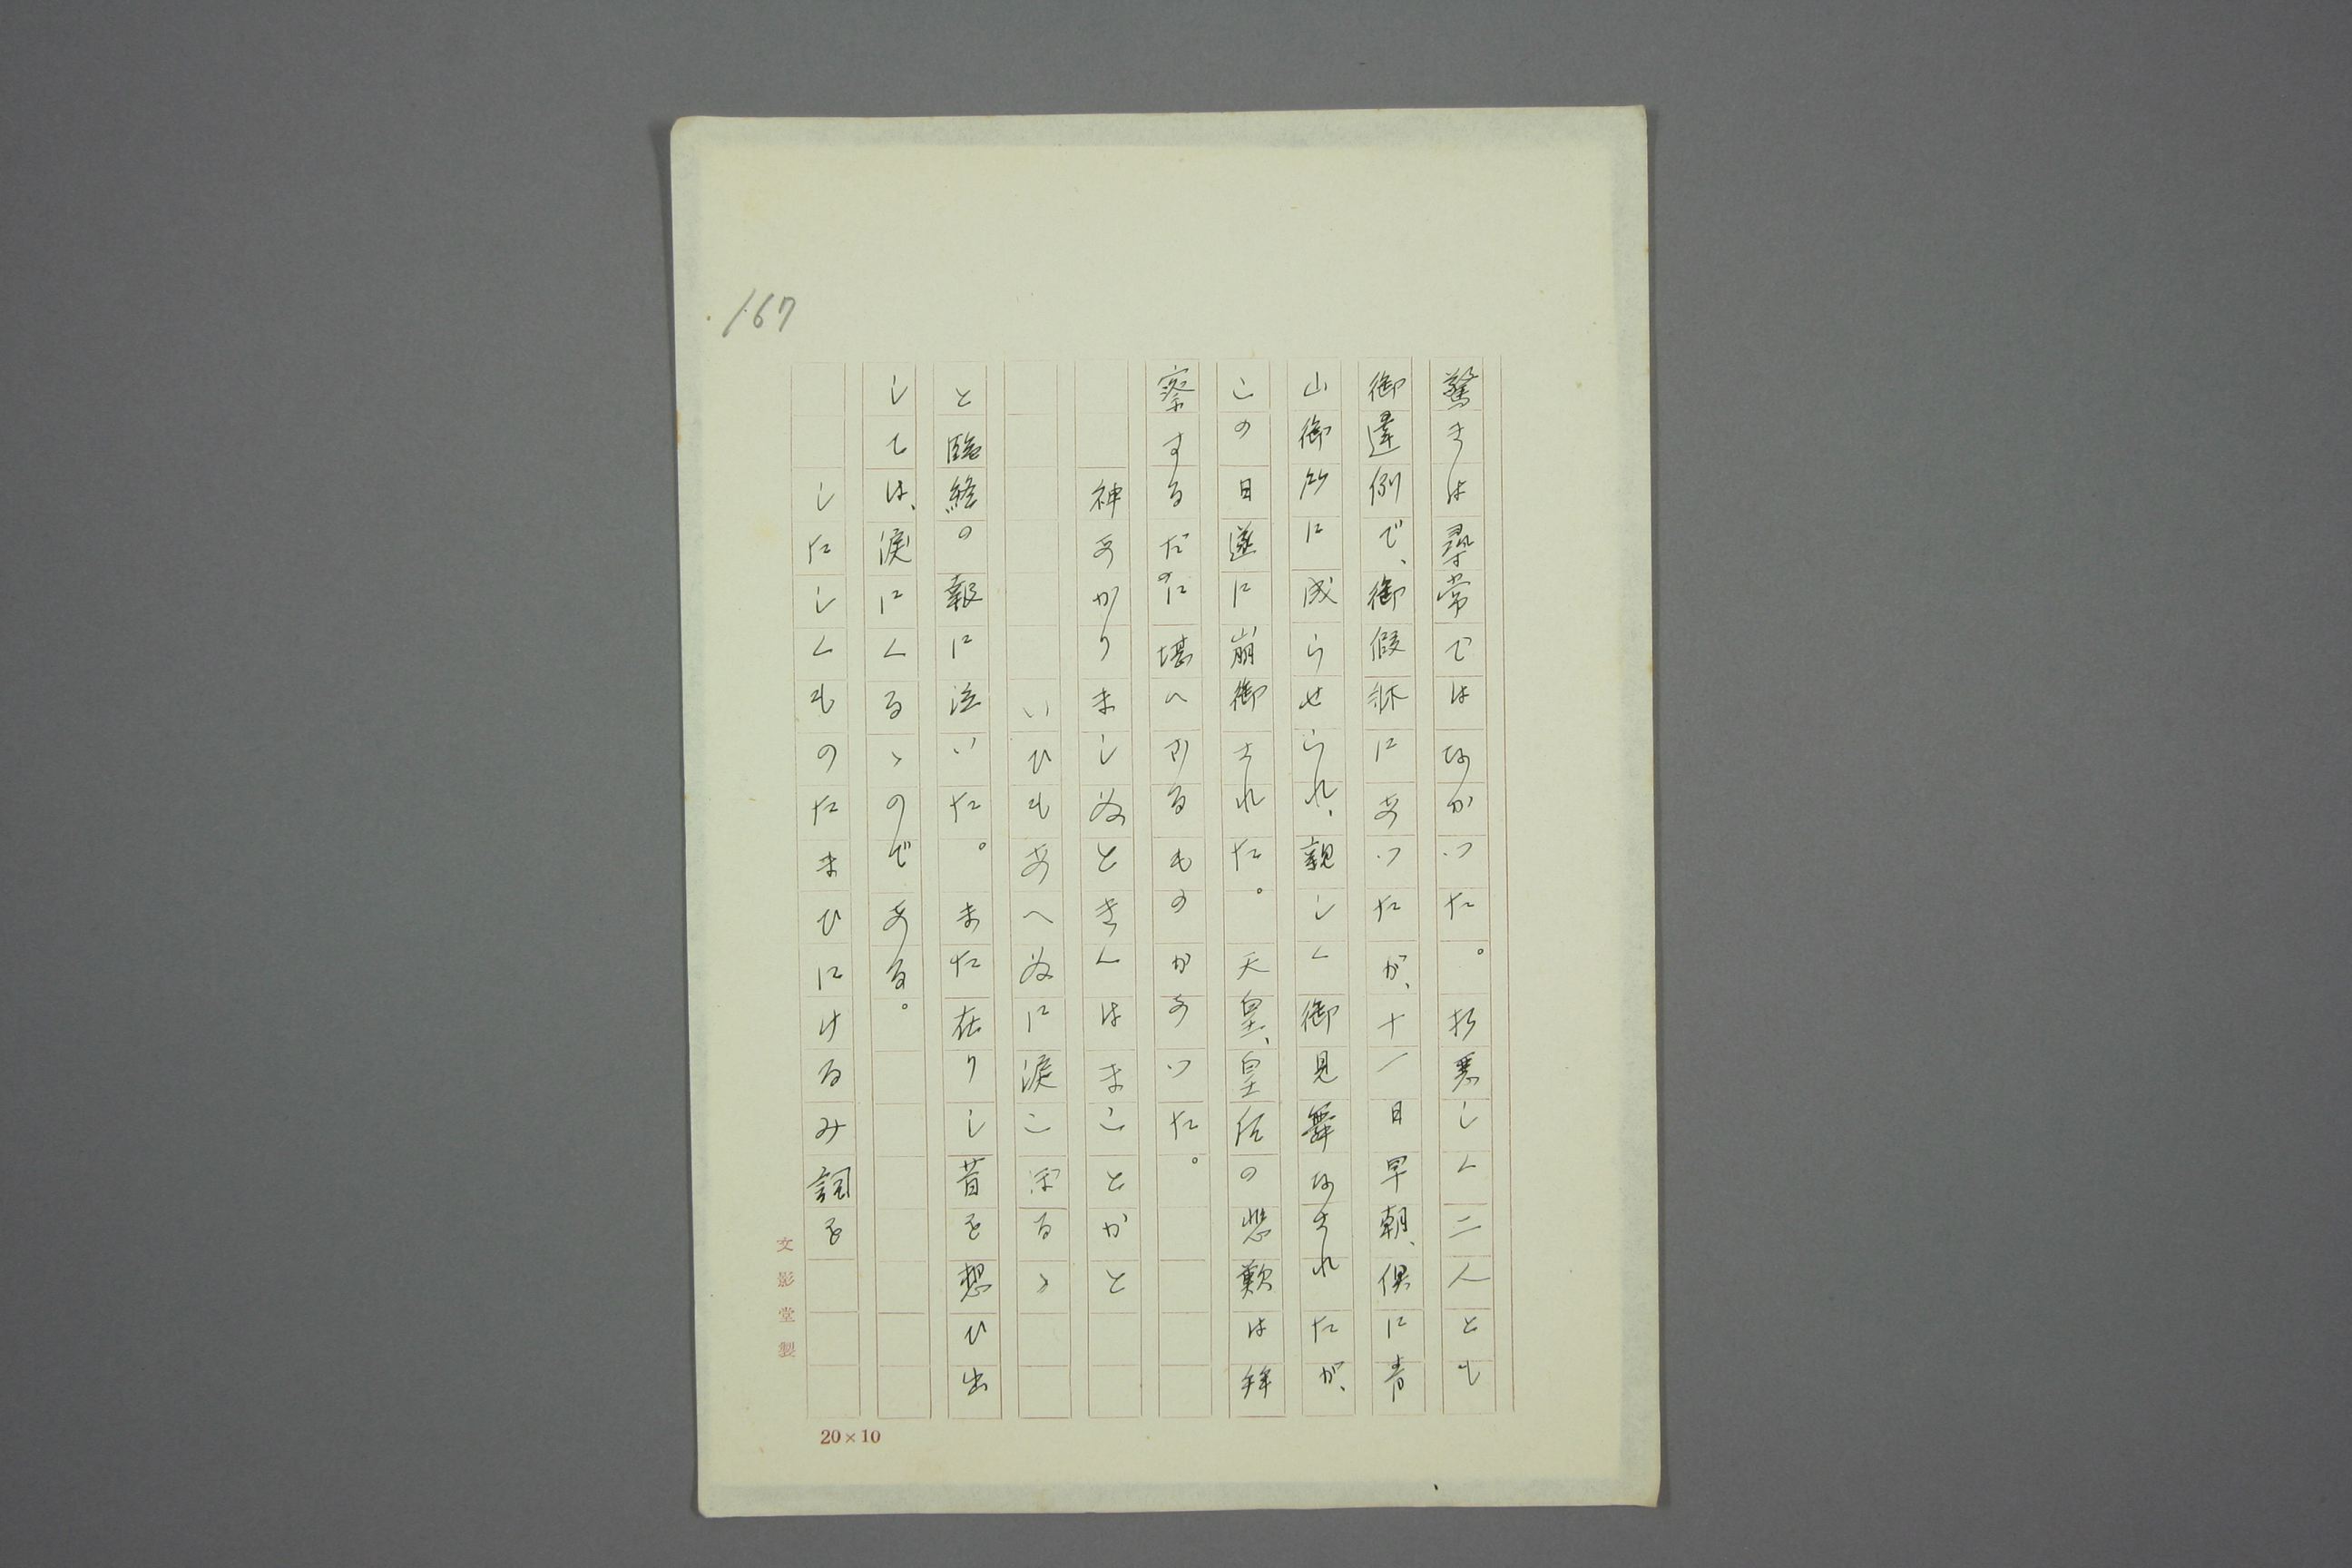 167
驚きは尋常ではなかつた。折悪しく二人とも
御違例で、御假牀にあつたが、十一日早朝、倶に青
山御所に成らせられ、親しく御見舞なされたが、
この日遂に崩御された。天皇、皇后の悲歎は拝
察するだに堪へかるものがあつた。
神あかりましぬときくはまことかと
いひもあへぬに涙こほるゝ
と臨終の報に泣いた。また在りし昔を想ひ出
しては、涙にくるゝのである。
したしくものたまひにけるみ詞を
文影堂製
20×10